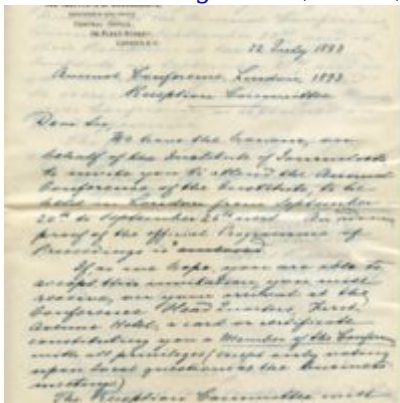 THE INSTITUTE OF JOURNALISTS
CENTRAL OFFICE,
FLEET STREET,
LONDON, E.C.
22 July 1893
Annual Conference, London, 1893
Reception Committee
Dear Sir,
We have the honour, on
behalf of the Institute of Journalists
to invite you to attend the Annual
Conference of the Institute, to be
held in London from September
20th to September 26th next. An
proof of the official Programme of
Proceedings is enclosed.
If, as we hope, you are able to
accept this invitation, you will
receive, on your arrival at the
Conference Head Quarters, First
Avenue Hotel, a card or certificate
constituting you a Member of the Conference
with all privileges (except only voting
upon local questions at the business
meetings)
The Reception Committee will